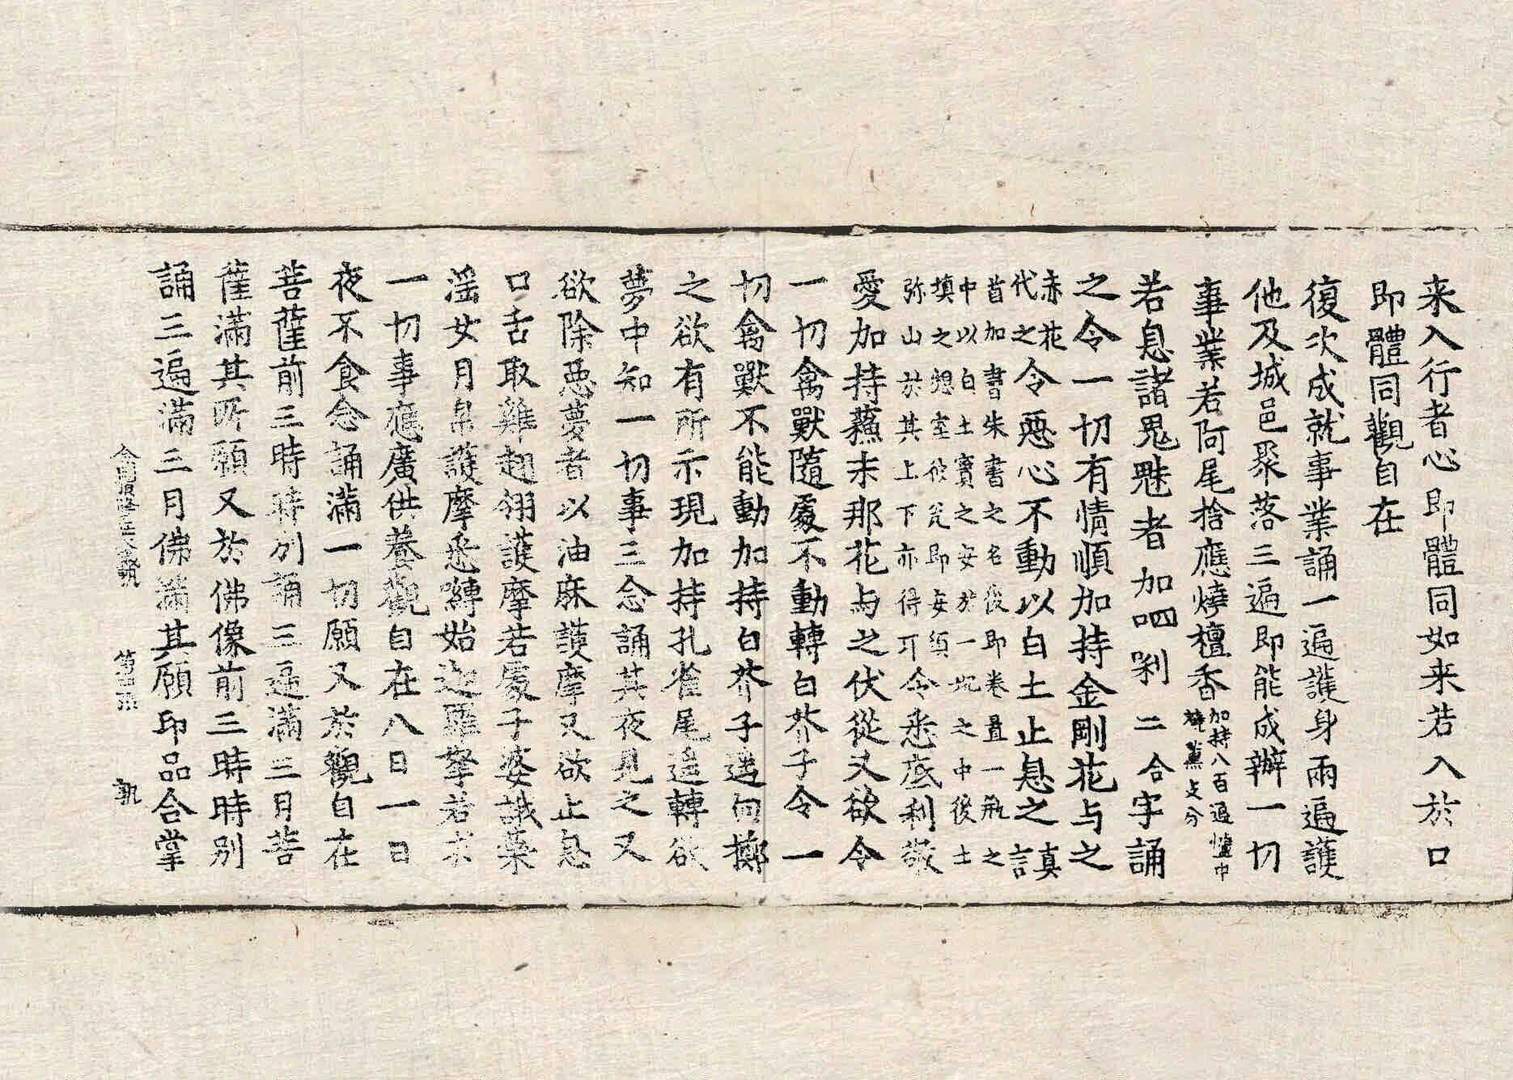 来入行者心即體同如来若入於口
即體同觀自在
復次成就事業誦一遍護身兩遍護
他及城邑聚落三遍即能成辦一切
事業若阿尾捨應燒檀香加持八百遍爐中
燒薰
若息諸鬼魅者加呬㗚二合字誦
之令一切有情順加持金剛花与之
赤花
代之令惡心不動以白土止息之真
言
首加書朱書之名後即卷置一瓶之
中以白土實之安於一坑之中後土
填之想室彼瓮即安須
弥山於其上下亦得耳令悉底利敬
愛加持蘓末那花与之伏從又欲令
一切禽獸隨處不動轉白芥子令一
切禽獸不能動加持白芥子遥向擲
之欲有所示現加持孔雀尾遥轉欲
夢中知一切事三念誦其夜見之又
欲除惡夢者以油麻護摩又欲止息
口舌取雞翅翎護摩若處子婆誐藥
滛女月帛護摩悉嚩始迦羅拏若求
一切事應廣供養觀自在八日一日
夜不食念誦滿一切願又於觀自在
菩薩前三時時别誦三遍滿三月菩
薩滿其所願又於佛像前三時時别
誦三遍滿三月佛滿其願印品合掌
第 張 執